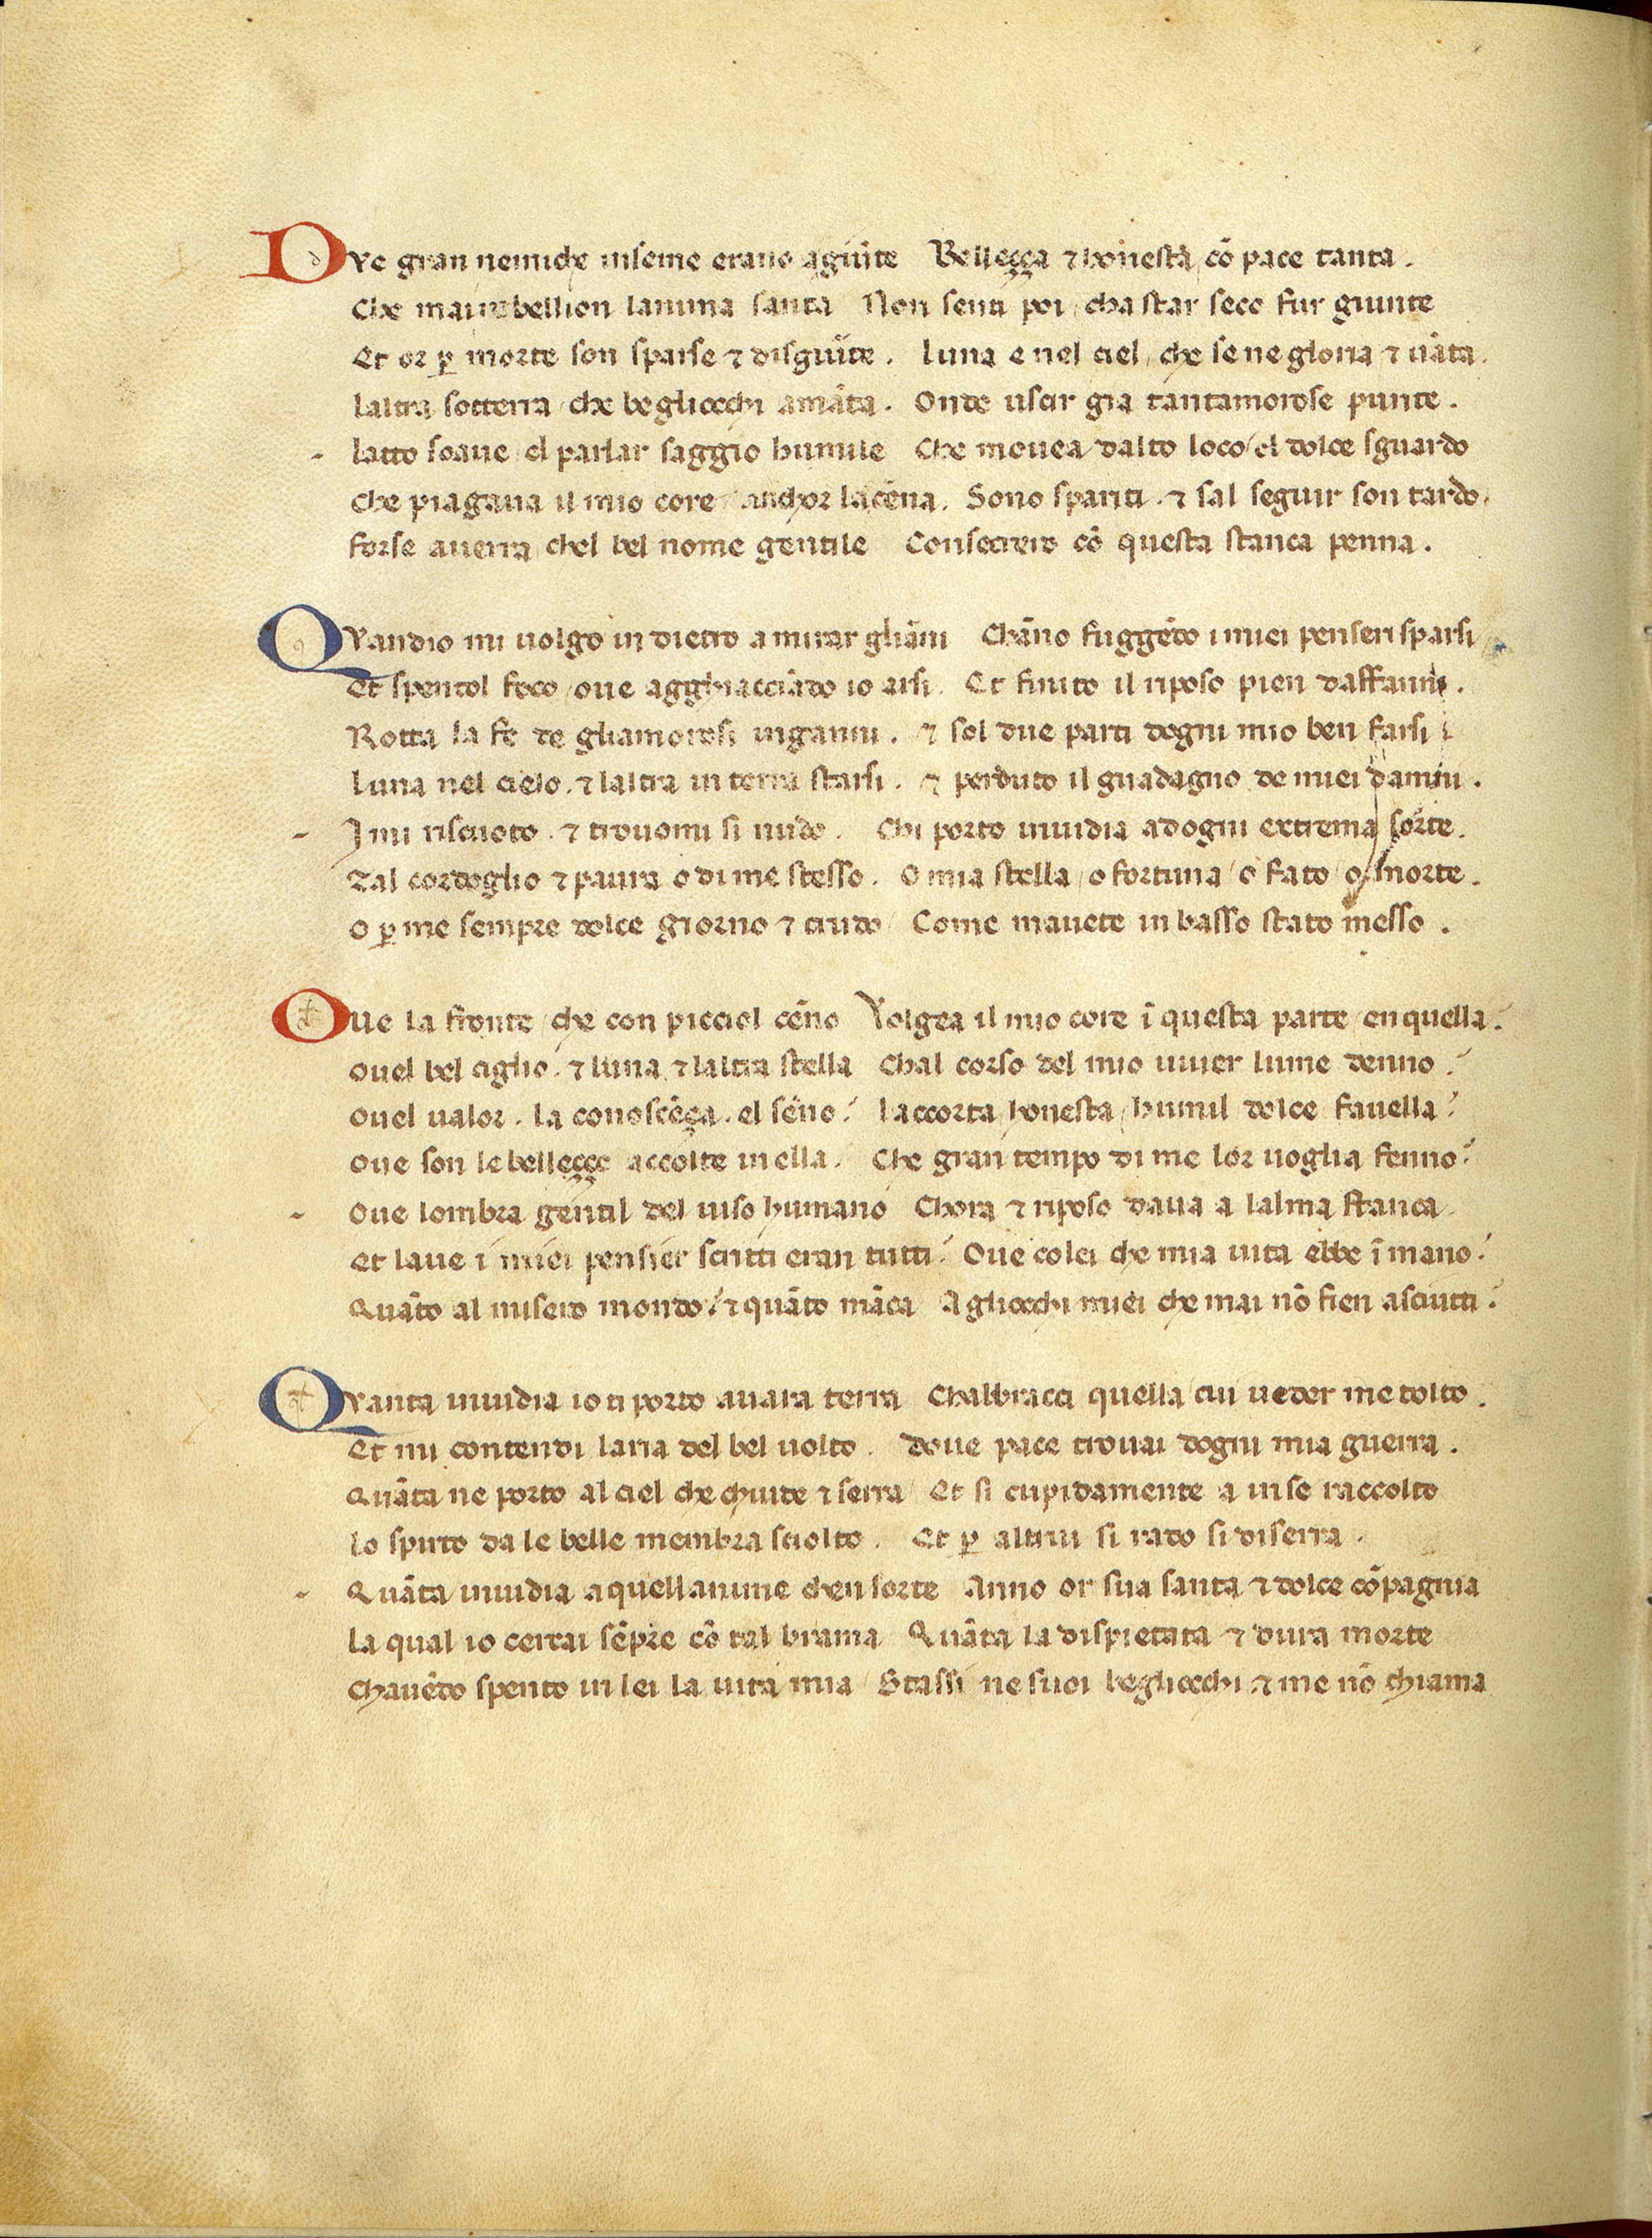 DVe gran nemiche inseme erano agiũte Belleçça ⁊ honestà cõ pace tanta.
Che mai rebellion lanima santa Non senti poi / cha star seco fur giunte
Et or ꝑ morte son sparse ⁊ disgiũte. luna e nel ciel / che se ne gloria ⁊ uãta.
laltra sotterra / che begliocchi amãta. Onde uscir gia tantamorose punte.
latto soaue / el parlar saggio humile Che mouea dalto loco / el dolce sguardo
che piagaua il mio core / anchor lacẽna. Sono spariti. ⁊ sal seguir son tardo.
forse auerra / chel bel nome gentile Consecrero cõ questa stanca penna.
QVandio mi uolgo in dietro a mirar gliãni Chãno fuggẽdo i miei penseri sparsi /
Et spentol foco / oue agghiacciãdo io arsi. Et finito il riposo pien daffanni.
Rotta la fe de gliamorosi inganni. ⁊ sol due parti dogni mio ben farsi
luna nel cielo. ⁊ laltra in terra starsi. ⁊ perduto il guadagno de miei damni.
I mi riscuoto. ⁊ trouomi si nudo. Chi porto inuidia adogni extrema sorte.
Tal cordoglio ⁊ paura o di me stesso. O mia stella / o fortuna / o fato / o morte.
O ꝑ me sempre dolce giorno ⁊ crudo / Come mauete in basso stato messo.
OVe la fronte / che con picciol cẽno Volgea il mio core ĩ questa parte / en quella.
ouel bel ciglio. ⁊ luna ⁊ laltra stella Chal corso del mio uiuer lume denno.
ouel ualor. la conoscẽça. el sẽno. laccorta / honesta / humil dolce fauella.
oue son le belleççe accolte in ella. Che gran tempo di me lor uoglia fenno.
Oue lombra gentil del uiso humano Chora ⁊ riposo daua a lalma stanca
et laue i miei pensier scritti eran tutti. Oue colei che mia uita ebbe ĩ mano.
Quãto al misero mondo. ⁊ quãto mãca Agliocchi miei che mai nõ fien asciutti.
QVanta inuidia io ti porto auara terra Chabbracci quella / cui ueder me tolto.
Et mi contendi laria del bel uolto. Doue pace trouai dogni mia guerra.
Quãta ne porto al ciel che chiude ⁊ serra / Et si cupidamente a in se raccolto
lo spirto da le belle membra sciolto. Et ꝑ altrui si rado si diserra.
Quãta inuidia aquellanime chen sorte Anno or sua santa ⁊ dolce cõpagnia
la qual io cercai sẽpre cõ tal brama Quãta la dispietata ⁊ dura morte
chauẽdo spento in lei la uita mia / Stassi ne suoi begliocchi. ⁊ me nõ chiama